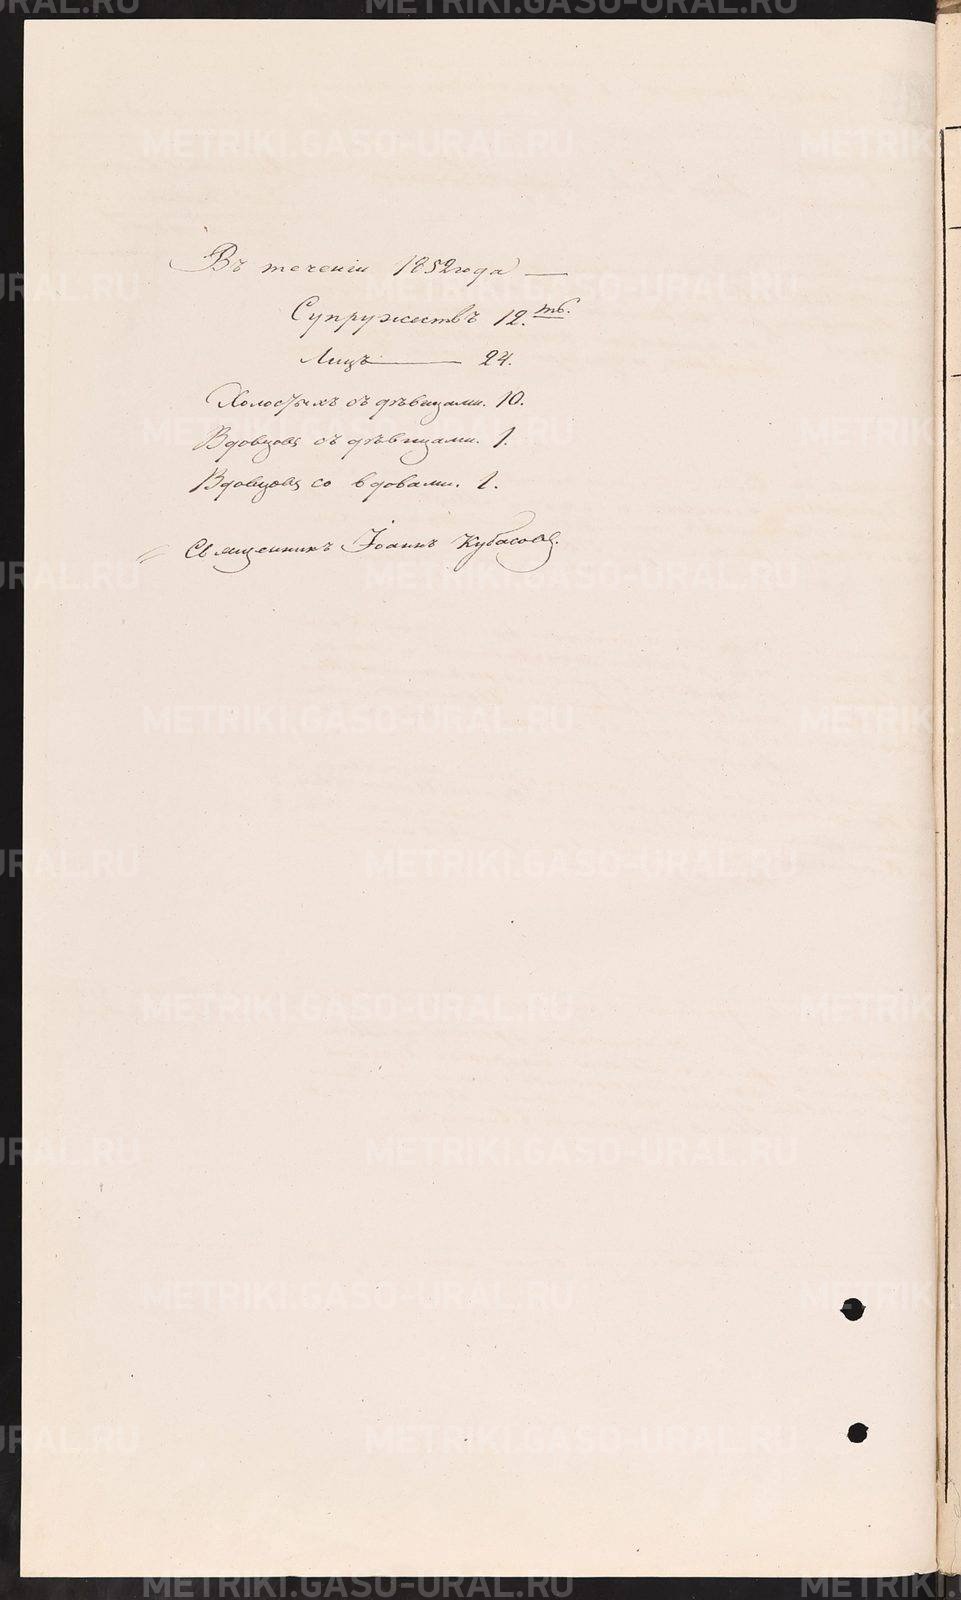 Въ теченіи 1852 года —
Супружествъ 12.ть.
Лицъ — 24.
Холостыхъ съ дѣвицами. 10.
Вдовцовъ съ дѣвицами. 1.
Вдовцовъ со вдовами. 1.
Священникъ Іоаннъ Кубасовъ.
METRIKI.GASO-URAL.RU